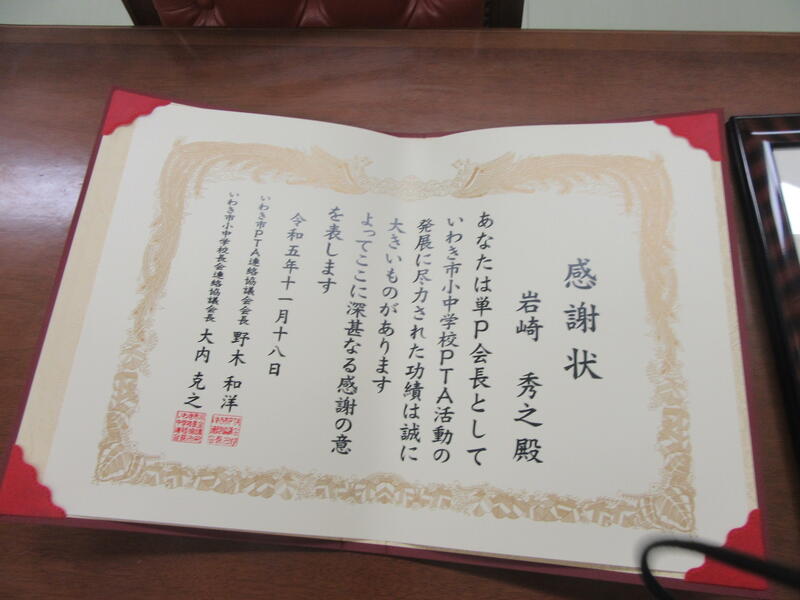 感謝状
岩崎 秀之 殿
あなたは単P会長として
いわき市小中学校PTA活動の
発展に尽力された功績は誠に
大きいものがあります
よってここに深甚なる感謝の意
を表します
令和五年十一月十八日
いわき市PTA連絡協議会会長 野木 和洋
いわき市小中学校長会連絡協議会長 大内 克之